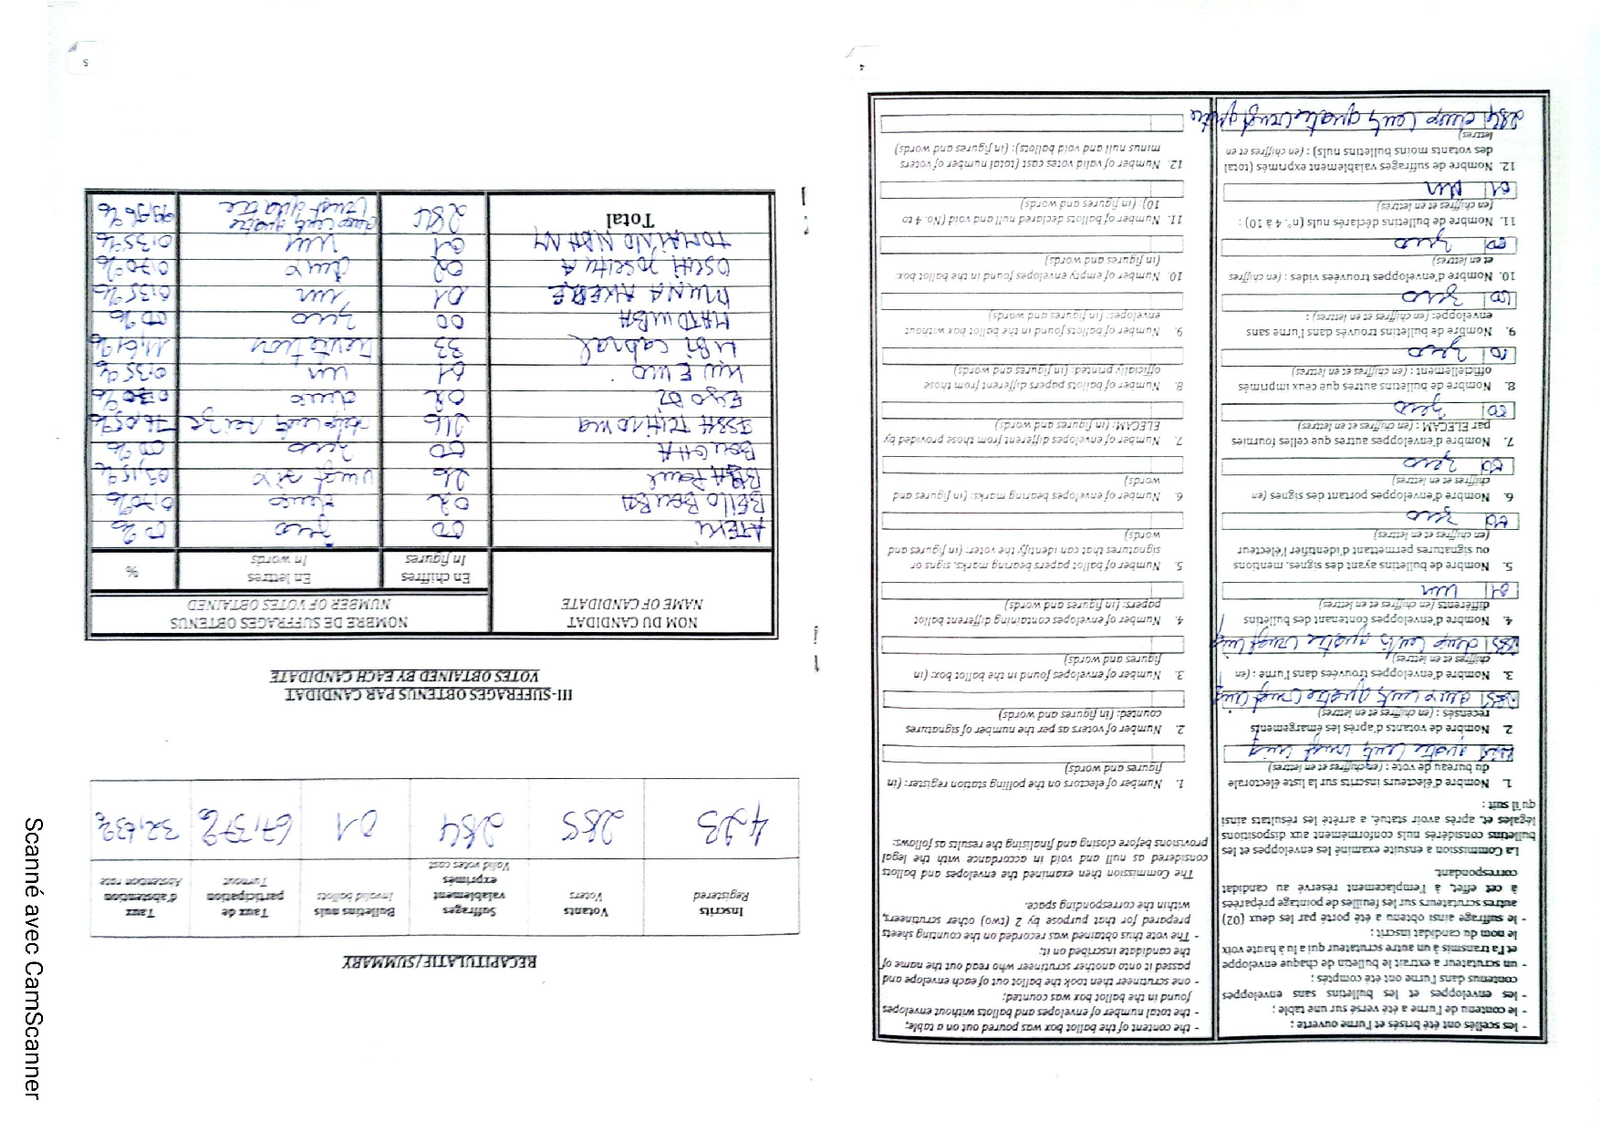 4
- les scellés ont été brisés et l'urne ouverte ;
- le contenu de l'urne a été versé sur une table ;
- les enveloppes et les bulletins sans enveloppes
contenus dans l'urne ont été comptés ;
- un scrutateur a extrait le bulletin de chaque enveloppe
et l'a transmis à un autre scrutateur qui a lu à haute voix
le nom du candidat inscrit ;
- le suffrage ainsi obtenu a été porté par les deux (02)
autres scrutateurs sur les feuilles de pointage préparées
à cet effet, à l'emplacement réservé au candidat
correspondant.
La Commission a ensuite examiné les enveloppes et les
bulletins considérés nuls conformément aux dispositions
légales et, après avoir statué, a arrêté les résultats ainsi
qu'il suit :
1. Nombre d'électeurs inscrits sur la liste électorale
du bureau de vote : (en chiffres et en lettres)
quatre cent vingt
2. Nombre de votants d'après les émargements
recensés : (en chiffres et en lettres)
285 deux cent quatre vingt cinq
3. Nombre d'enveloppes trouvées dans l'urne : (en
chiffres et en lettres)
285 deux cents quatre vingt cinq
4. Nombre d'enveloppes contenant des bulletins
différents (en chiffres et en lettres)
01 un
5. Nombre de bulletins ayant des signes, mentions
ou signatures permettant d'identifier l'électeur
(en chiffres et en lettres)
00 zero
6. Nombre d'enveloppes portant des signes (en
chiffres et en lettres)
00 zero
7. Nombre d'enveloppes autres que celles fournies
par ELECAM : (en chiffres et en lettres)
00 zero
8. Nombre de bulletins autres que ceux imprimés
officiellement : (en chiffres et en lettres)
00 zero
9. Nombre de bulletins trouvés dans l'urne sans
enveloppe: (en chiffres et en lettres) :
00 zero
10. Nombre d'enveloppes trouvées vides : (en chiffres
et en lettres)
00 zero
11. Nombre de bulletins déclarés nuls (n°. 4 à 10) :
(en chiffres et en lettres)
01 un
12. Nombre de suffrages valablement exprimés (total
des votants moins bulletins nuls) : (en chiffres et en
lettres)
284 deux cent quatre vingt quatre
- the content of the ballot box was poured out on a table;
- the total number of envelopes and ballots without envelopes
found in the ballot box was counted;
- one scrutineer then took the ballot out of each envelope and
passed it onto another scrutineer who read out the name of
the candidate inscribed on it;
- The vote thus obtained was recorded on the counting sheets
prepared for that purpose by 2 (two) other scrutineers,
within the corresponding space.
The Commission then examined the envelopes and the ballots
considered as null and void in accordance with the legal
provisions before closing and finalising the results as follows:
1. Number of electors on the polling station register: (in
figures and words)
2. Number of voters as per the number of signatures
counted: (in figures and words)
3. Number of envelopes found in the ballot box: (in
figures and words)
4. Number of envelopes containing different ballot
papers: (in figures and words)
5. Number of ballot papers bearing marks, signs or
signatures that can identify the voter: (in figures and
words)
6. Number of envelopes bearing marks: (in figures and
words)
7. Number of envelopes different from those provided by
ELECAM: (in figures and words)
8. Number of ballots papers different from those
officially printed: (in figures and words)
9. Number of ballots found in the ballot box without
envelopes: (in figures and words)
10. Number of empty envelopes found in the ballot box:
(in figures and words)
11. Number of ballots declared null and void (No. 4 to
10): (in figures and words)
12. Number of valid votes cast (total number of voters
minus null and void ballots): (in figures and words)
5
RECAPITULATIF/SUMMARY
Inscrits Registered | Votants Voters | Suffrages valablement exprimés Valid votes cast | Bulletins nuls Invalid ballots | Taux de participation Turnout | Taux d'abstention Abstention rate
423 | 285 | 284 | 01 | 67,37% | 32,63%
III- SUFFRAGES OBTENUS PAR CANDIDAT
VOTES OBTAINED BY EACH CANDIDATE
NOM DU CANDIDAT NAME OF CANDIDATE | NOMBRE DE SUFFRAGES OBTENUS NUMBER OF VOTES OBTAINED
En chiffres In figures | En lettres In words | %
ATEKI | 00 | zero | 00%
BELLO BOUBA | 02 | deux | 0,70%
BIYA Paul | 26 | vingt six | 09,15%
BOUGHA | 00 | zero | 00%
ISSA TCHIROMA | 216 | deux cent seize | 76,05%
02 | deux | 0,70%
KWEMO | 01 | un | 0,35%
LIBI Cabral | 33 | 11,61%
MATOMBA | 00 | zero | 00%
MUNA AKERE | 01 | un | 0,35%
OSCHI JOSCHUA | 02 | deux | 0,70%
TOMAINO NDAM NJ | 01 | un | 0,35%
Total | 284 | deux cent quatre vingt quatre | 99,96%
Scanné avec CamScanner